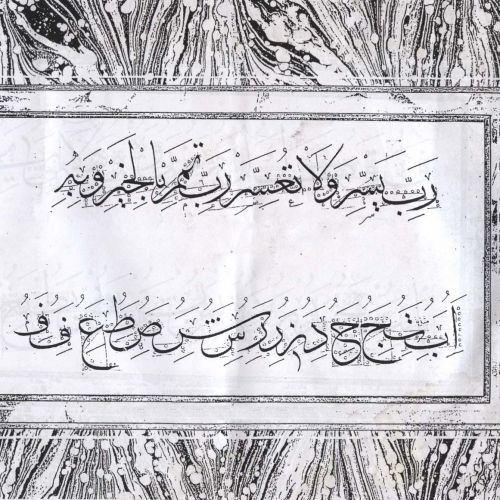 رب يسر ولا تعسر رب تمم بالخير وبه
ا ب ت ج ح د ر س ص ط ع ف ف